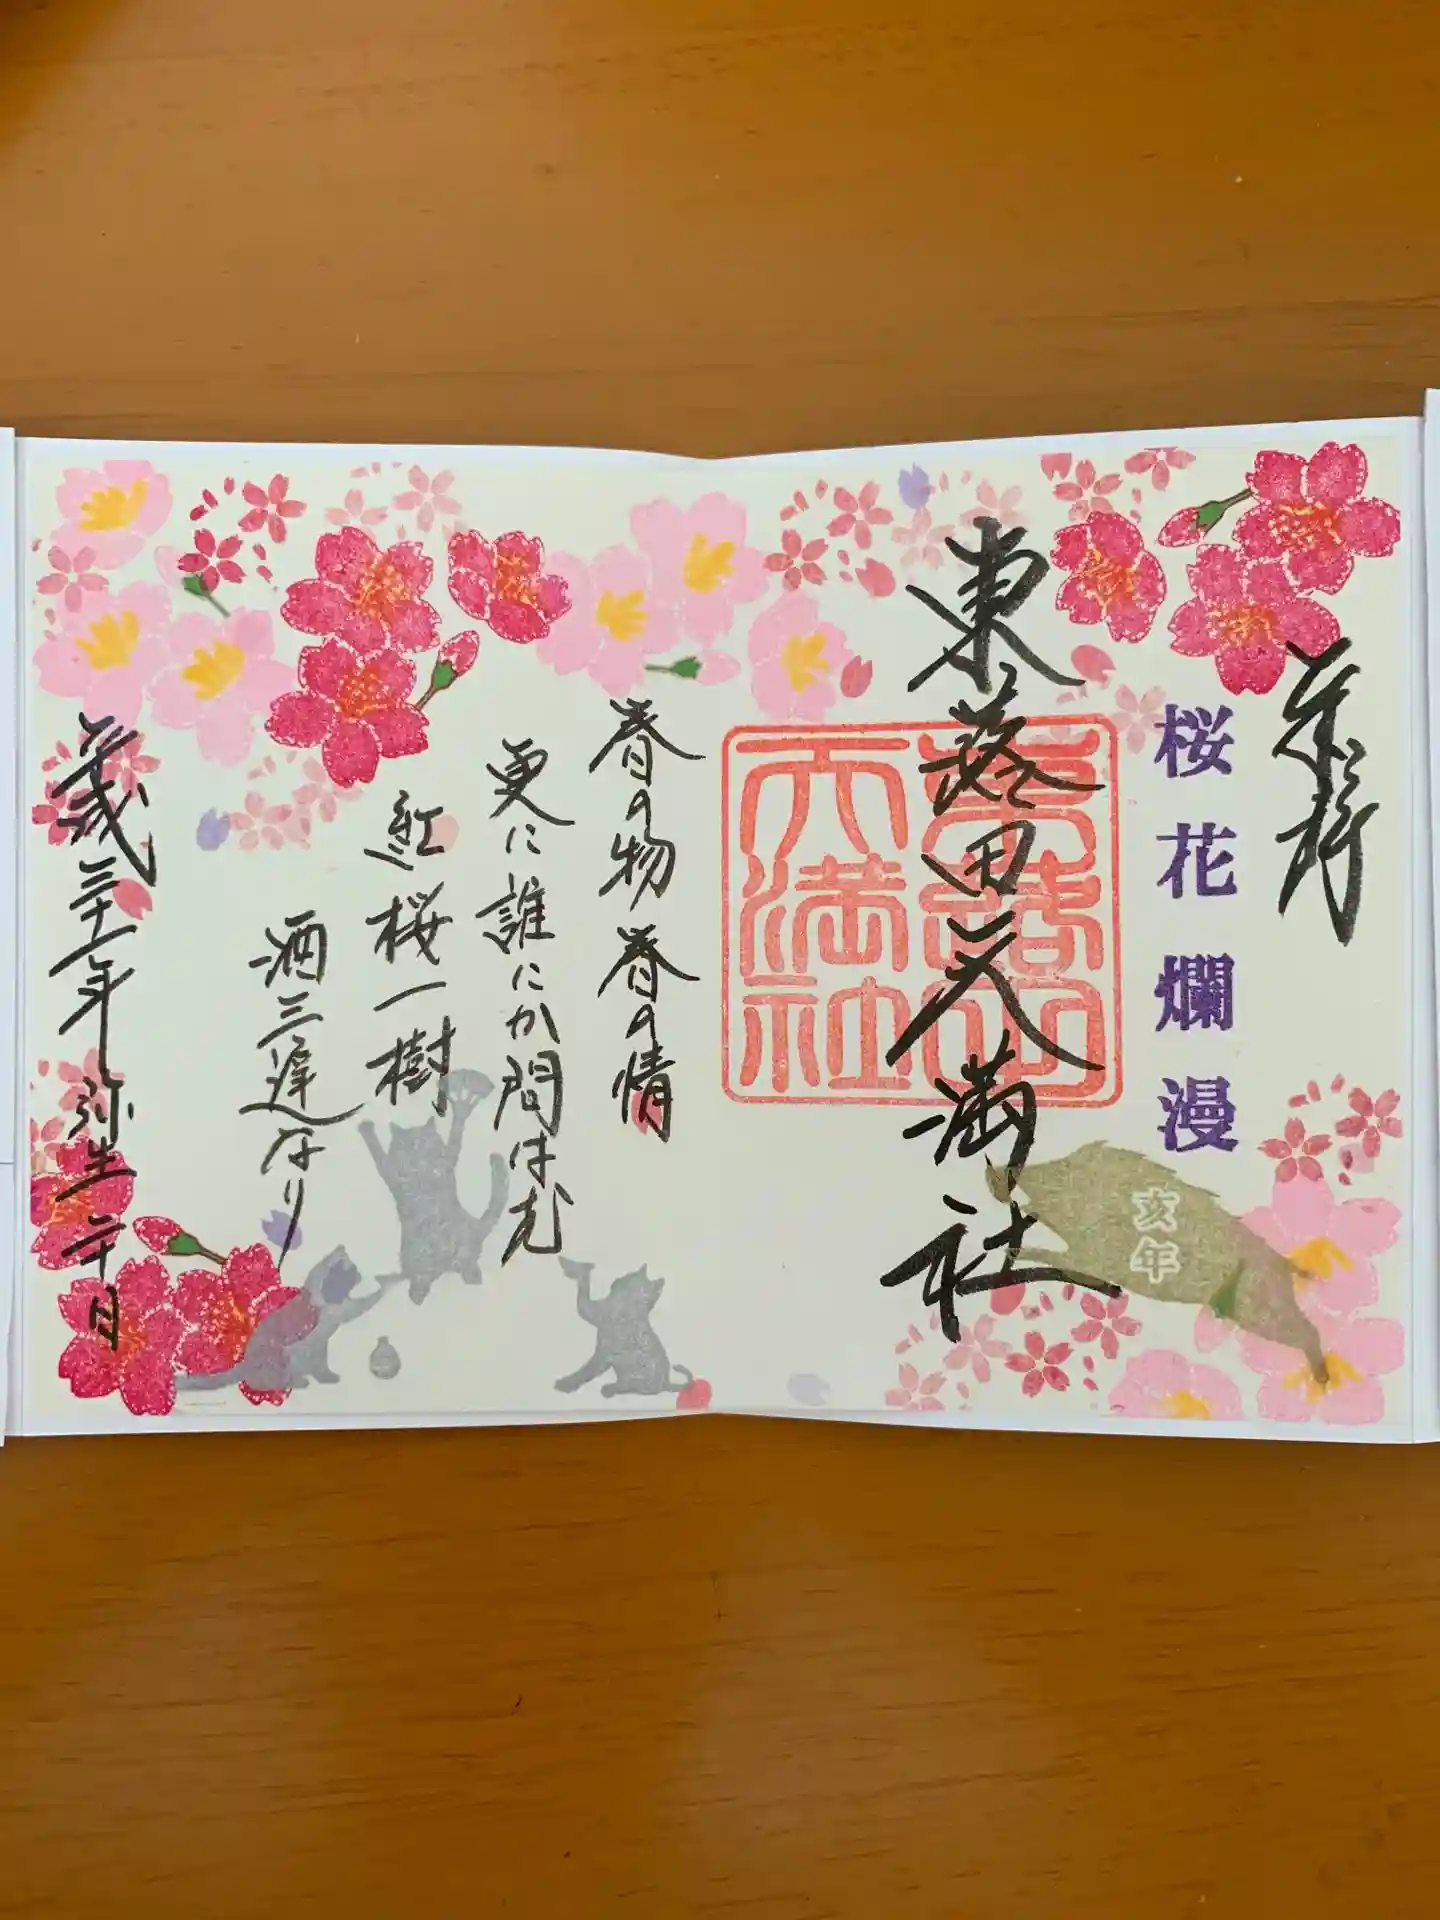 奉拝
桜花爛漫
東蕗田天満社
東蕗田
天満社
亥年
春の物春の情
更に誰にか問はむ
紅桜一樹
酒三遅なり
平成三十一年弥生二十日